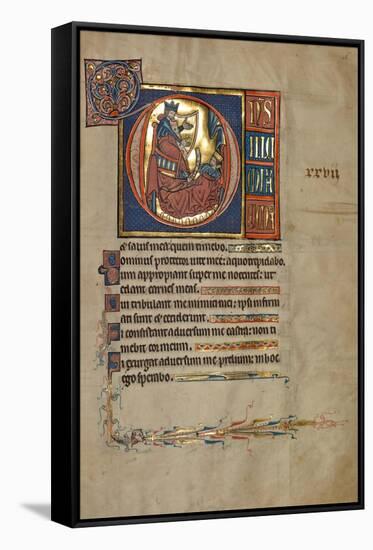 xxvii
et salus mea: quem timebo.
Dominus protector vite mee: a quo trepidabo.
Dum appropiant super me nocentes: ut
edant carnes meas.
Qui tribulant me inimici mei: ipsi infirm
ati sunt et ceciderunt.
Si consistant adversum me castra: non ti
mebit cor meum.
Si exurgat adversum me prelium: in hoc
ego sperabo.